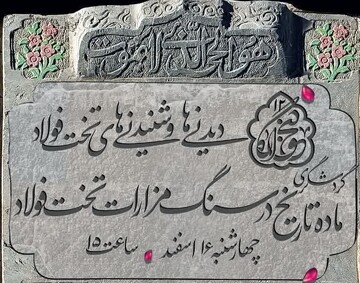 هو الحی الذی لا یموت
۱۲
دیدنی‌ها و شنیدنی‌های تخت فولاد
گردشگری
ماده تاریخ در سنگ مزارات تخت فولاد
چهارشنبه ۱۶ اسفند ساعت ۱۵